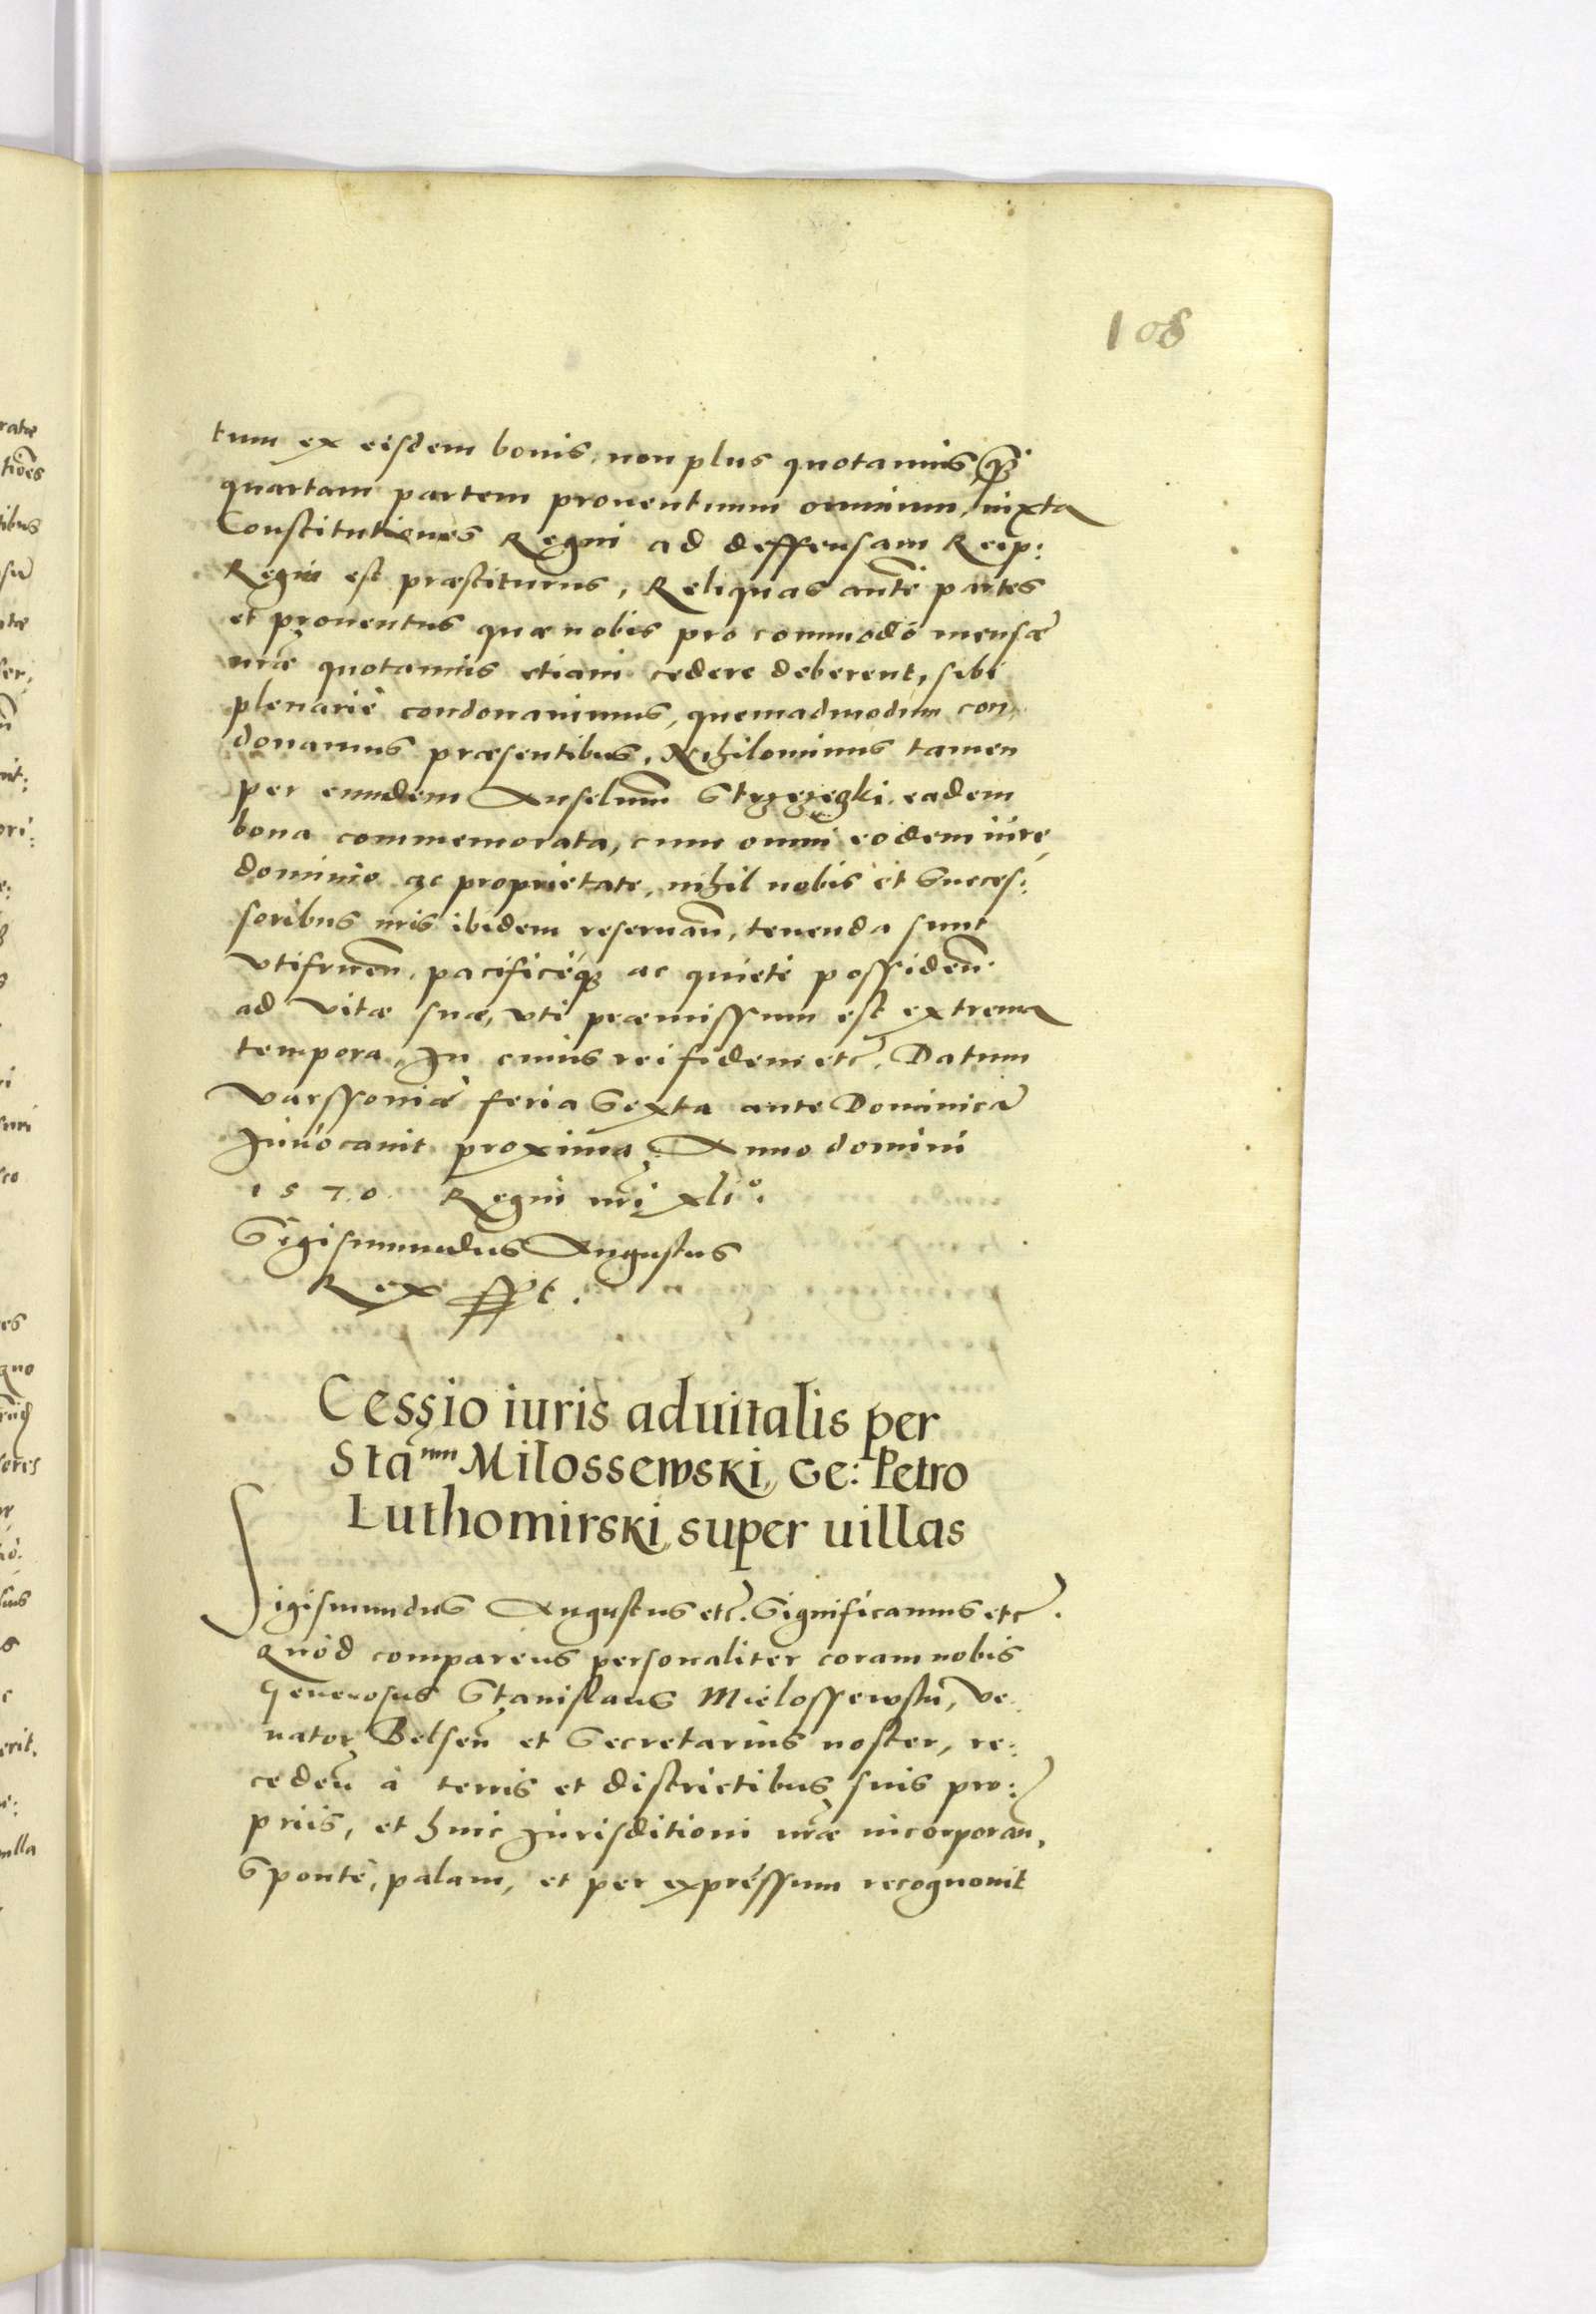 108
tum ex eisdem bonis, non plus quotannis, q̃3
quartam partem prouentuum omnium, iuxta
Constitutiones Regni ad deffensam Reip:
Regni est præstiturus, Reliquas autẽ partes
et prouentus quæ nobis pro commodo mensæ
nr̃æ quotannis etiam cedere deberent, sibi
plenariè condonauimus, quemadmodum con,
donamus præsentibus. Nihilominus tamen
per eundem Anselmũ eadem
bona commemorata, cum omni eodem iure,
dominio ac proprietate, nihil nobis et Succes:
soribus nr̃is ibidem reseruañ, tenenda sunt
vtifrueñ, pacificèq3 ac quietè possideñ
ad vitæ suæ, vti præmissum est extrema
tempora. In cuius rei fidem etc̃. Datum
Varssoniæ feria Sexta ante Dominicã
Inuocauit proxima Anno domini
1570. Regni nr̃i xliº.
Sigismundus Augustus
Rex sst.
Cessio iuris aduitalis per
Staⁿᵐ Milossewski, Ge: Petro
Luthomirski, super uillas
Sigismundus Augustus etc̃. Significamus etc̃.
Quòd comparens personaliter coram nobis
Generosus Stanislaus Mielossewski, Ve,
nator Belseñ et Secretarius noster, re:
cedeñ à terris et districtibus suis pro:
priis, et huic Jurisditioni nr̃æ incorporañ,
Spontè, palam, et per expréssum recognouit